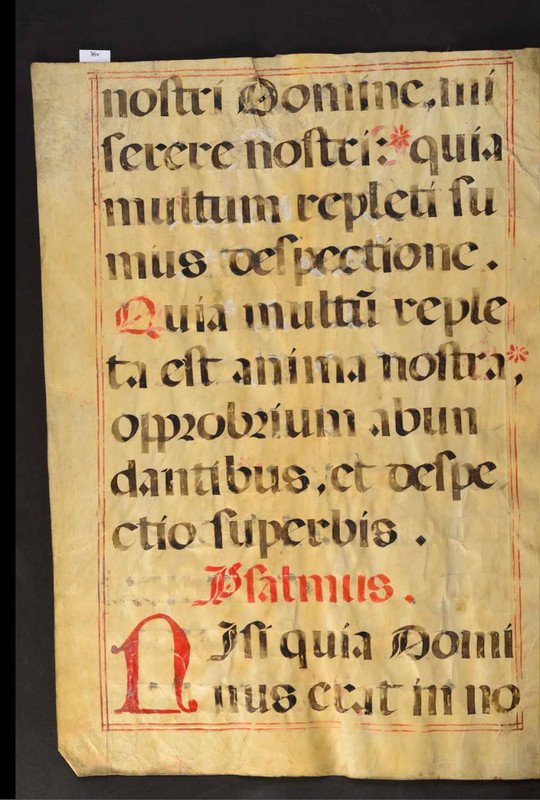 36v
nostri Domine, mi
serere nostri: * quia
multum repleti su
mus despectione.
Quia multū reple
ta est anima nostra, *
opprobrium abun
dantibus, et despe
ctio superbis.
Psalmus.
NIsi quia Domi
nus erat in no